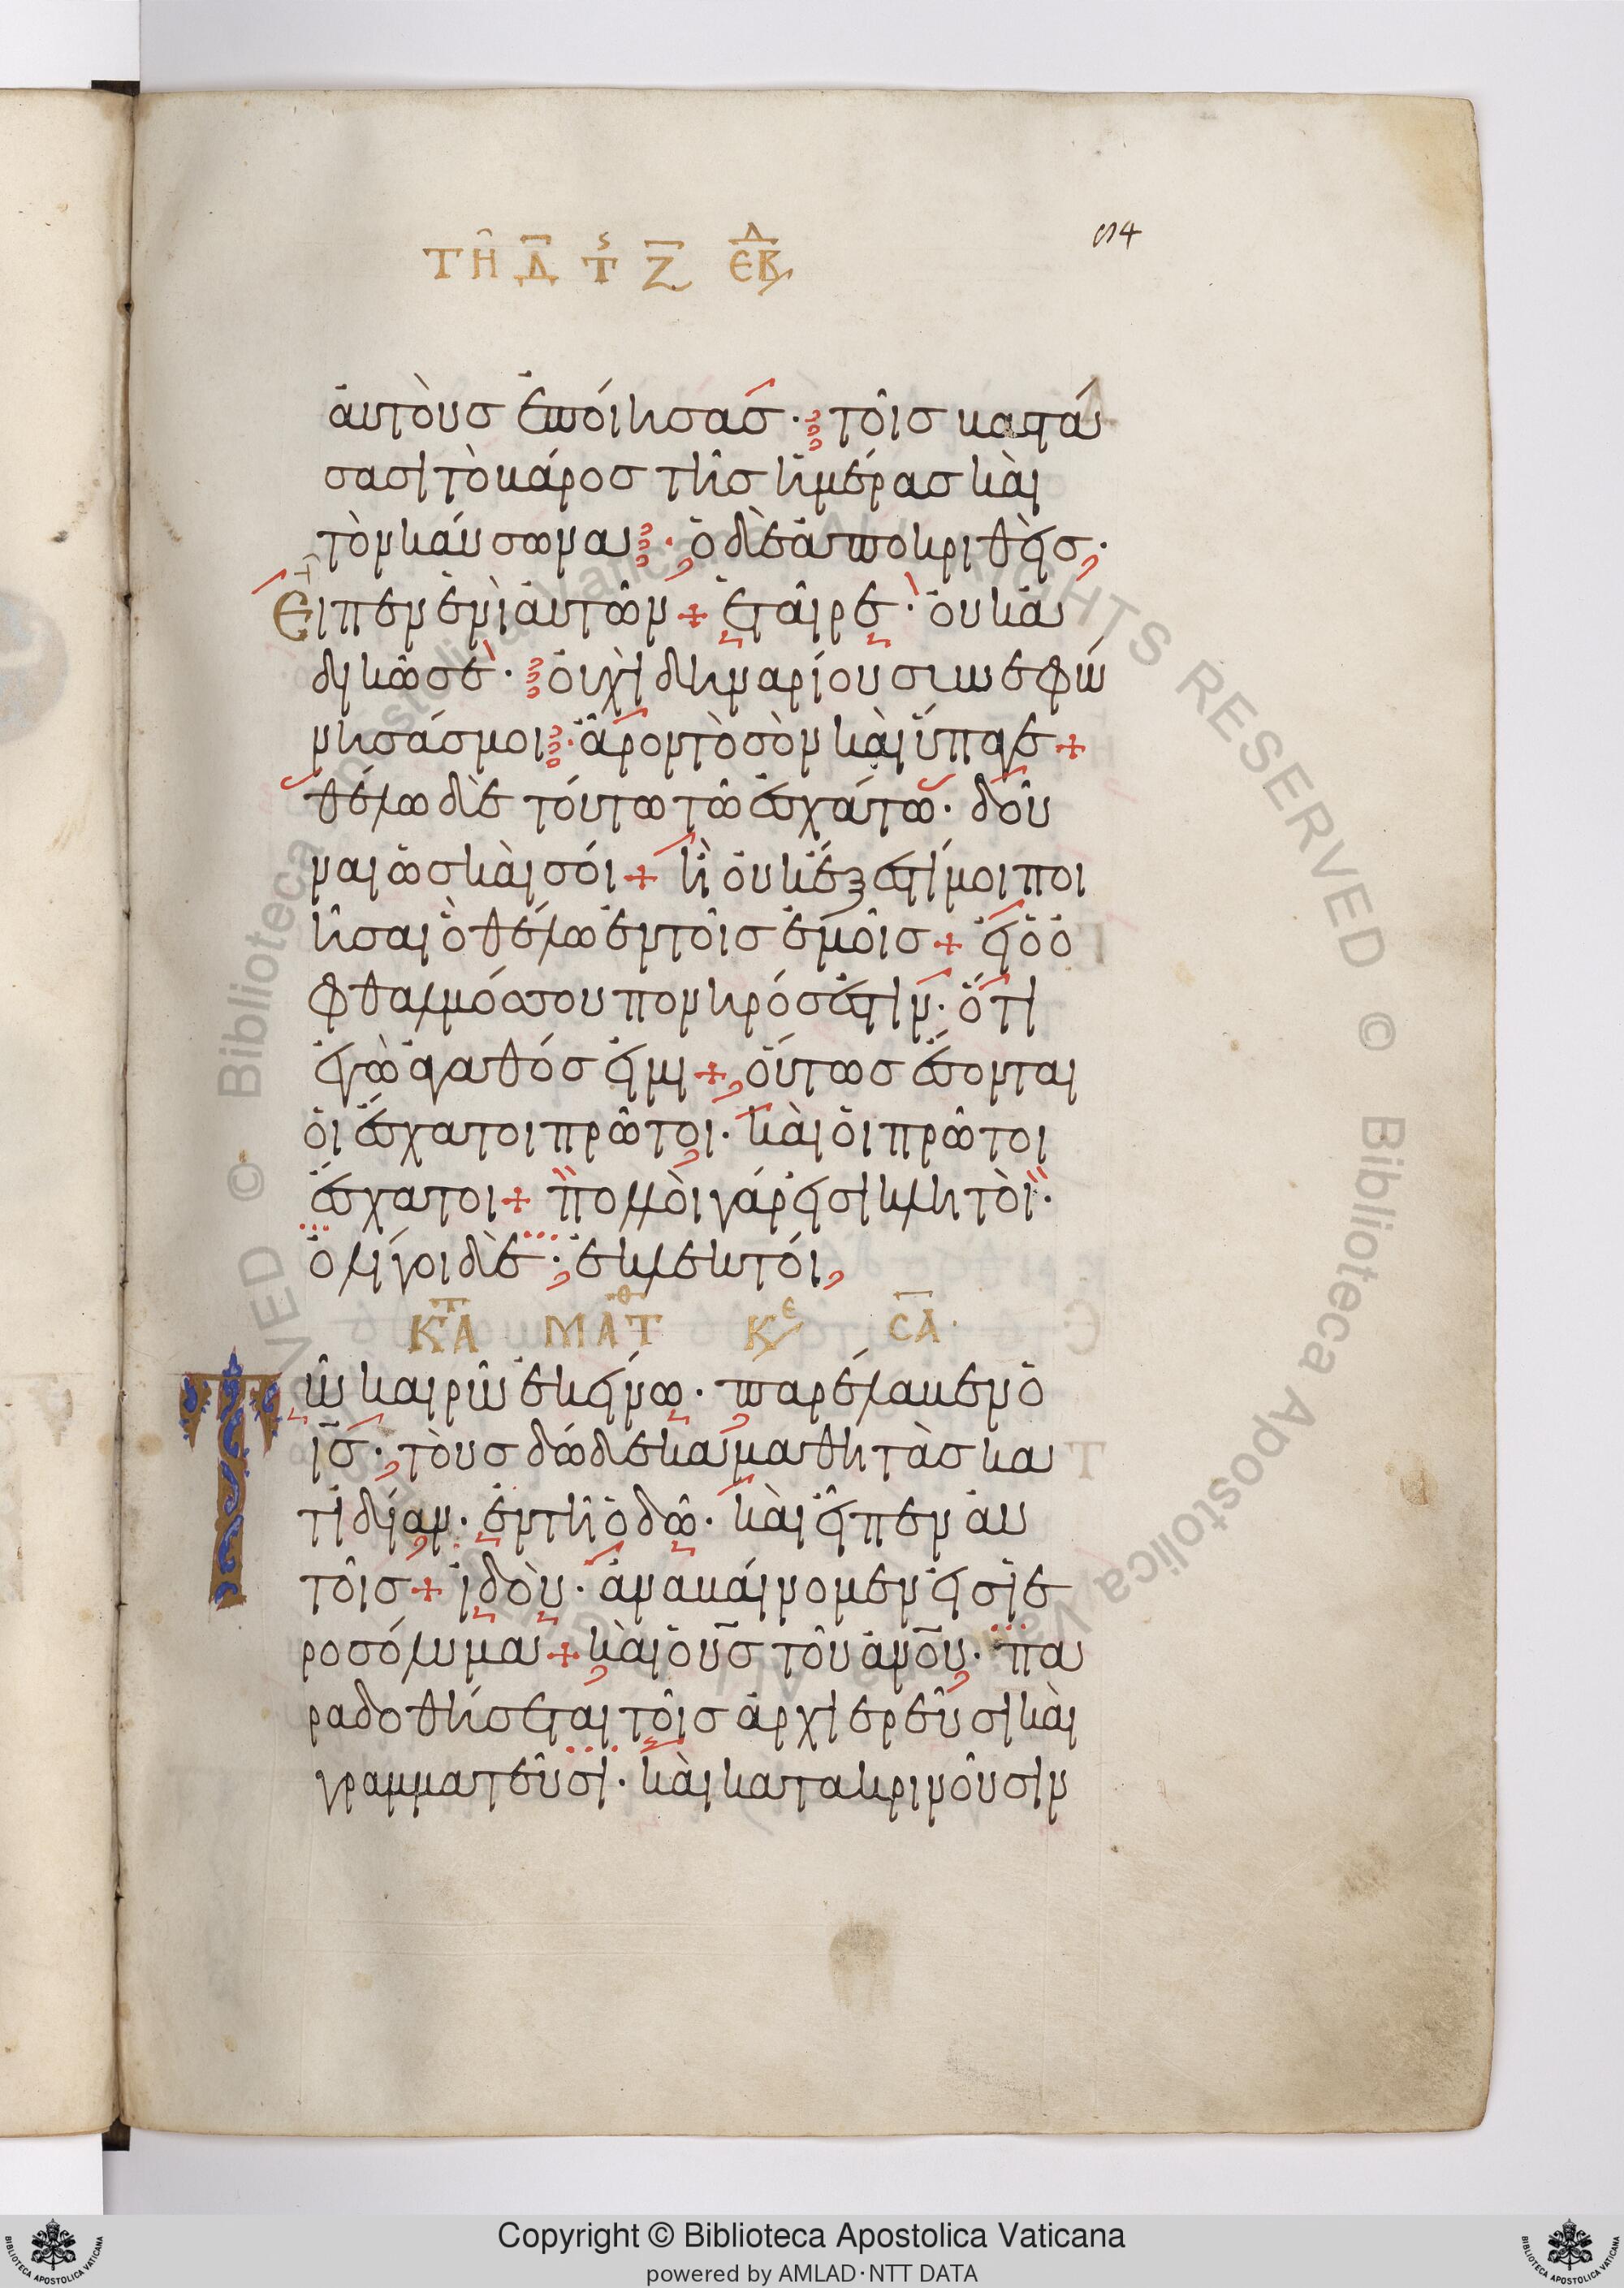 ΤΗ Δ Τς Ζ ΕΒΔ
94
ἀυτοὺσ ἐποίησασ· τοῖσ βαστά
σασι τὸ βάροσ τῆσ ἡμέρασ καὶ
τὸν καύσωνα· ὁ δὲ ἀποκριθεὶσ·
Εἶπεν ἑνὶ ἀυτῶν + ἑταῖρε· ὀυκ ἀ
δικῶ σε· ὀυχὶ δηναρίου συνεφώ
νησάσ μοι· ἆρον τὸ σὸν καὶ ὕπαγε +
θέλω δὲ τούτω τῶ ἐσχάτω· δοῦ
ναι ὡσ καὶ σόι + ἢ ὀυκ ἔξεστί μοι ποι
ῆσαι ὃ θέλω ἐν τοῖσ ἐμοῖσ + εἰ ὁ ὀ
φθαλμόσ σου πονηρόσ ἐστιν· ὅτι
ἐγὼ ἀγαθόσ εἰμι + ὅυτωσ ἔσονται
ὁι ἔσχατοι πρῶτοι· καὶ ὁι πρῶτοι
ἔσχατοι + πολλὸι γάρ εἰσι κλητὸι·
ὀλίγοι δὲ· ἐκλεκτόι,
ΚΠΑ ΜΑΤΘ Κε CΑ·
Τῶ καιρῶ ἐκείνω· παρέλαβεν ὁ
ισ· τοὺσ δώδεκα μαθητὰσ κα
τιδίαν· ἐν τῆ ὁδῶ· καὶ εἶπεν ἀυ
τοῖσ + ἰδοὺ· ἀναβάινομεν εἰσ ἱε
ροσόλυμα + καὶ ὁ υσ τοῦ ανου· πα
ραδοθήσεται τοῖσ ἀρχιερεῦσι καὶ
γραμματεῦσι· καὶ κατακρινοῦσιν
Copyright © Biblioteca Apostolica Vaticana
powered by AMLAD·NTT DATA